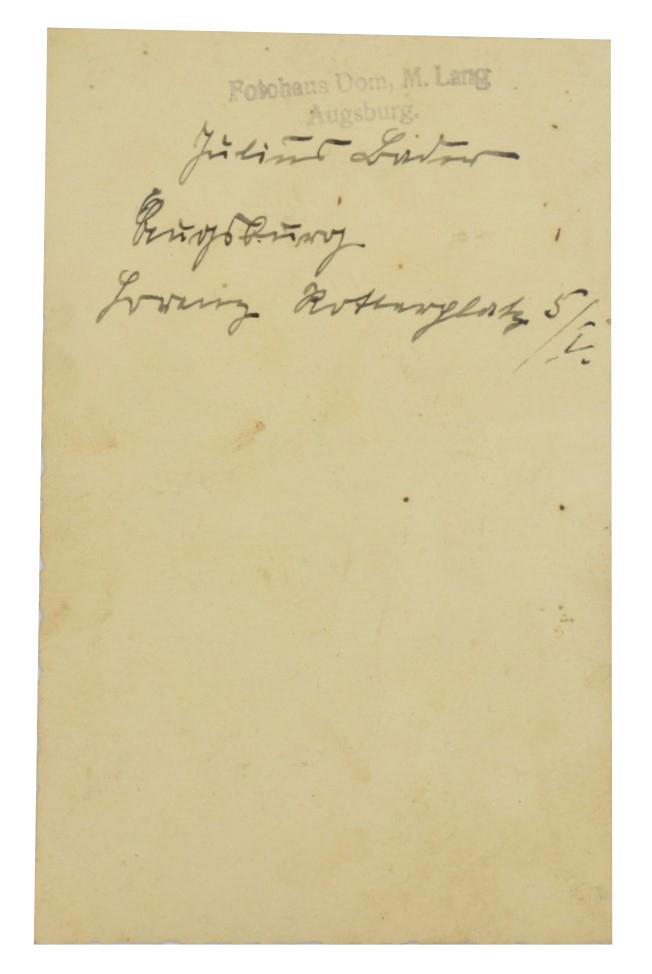 Fotohaus Dom, M. Lang
Augsburg.
Julius Bader
Augsburg
Lorenz Rotterplatz 5/I.